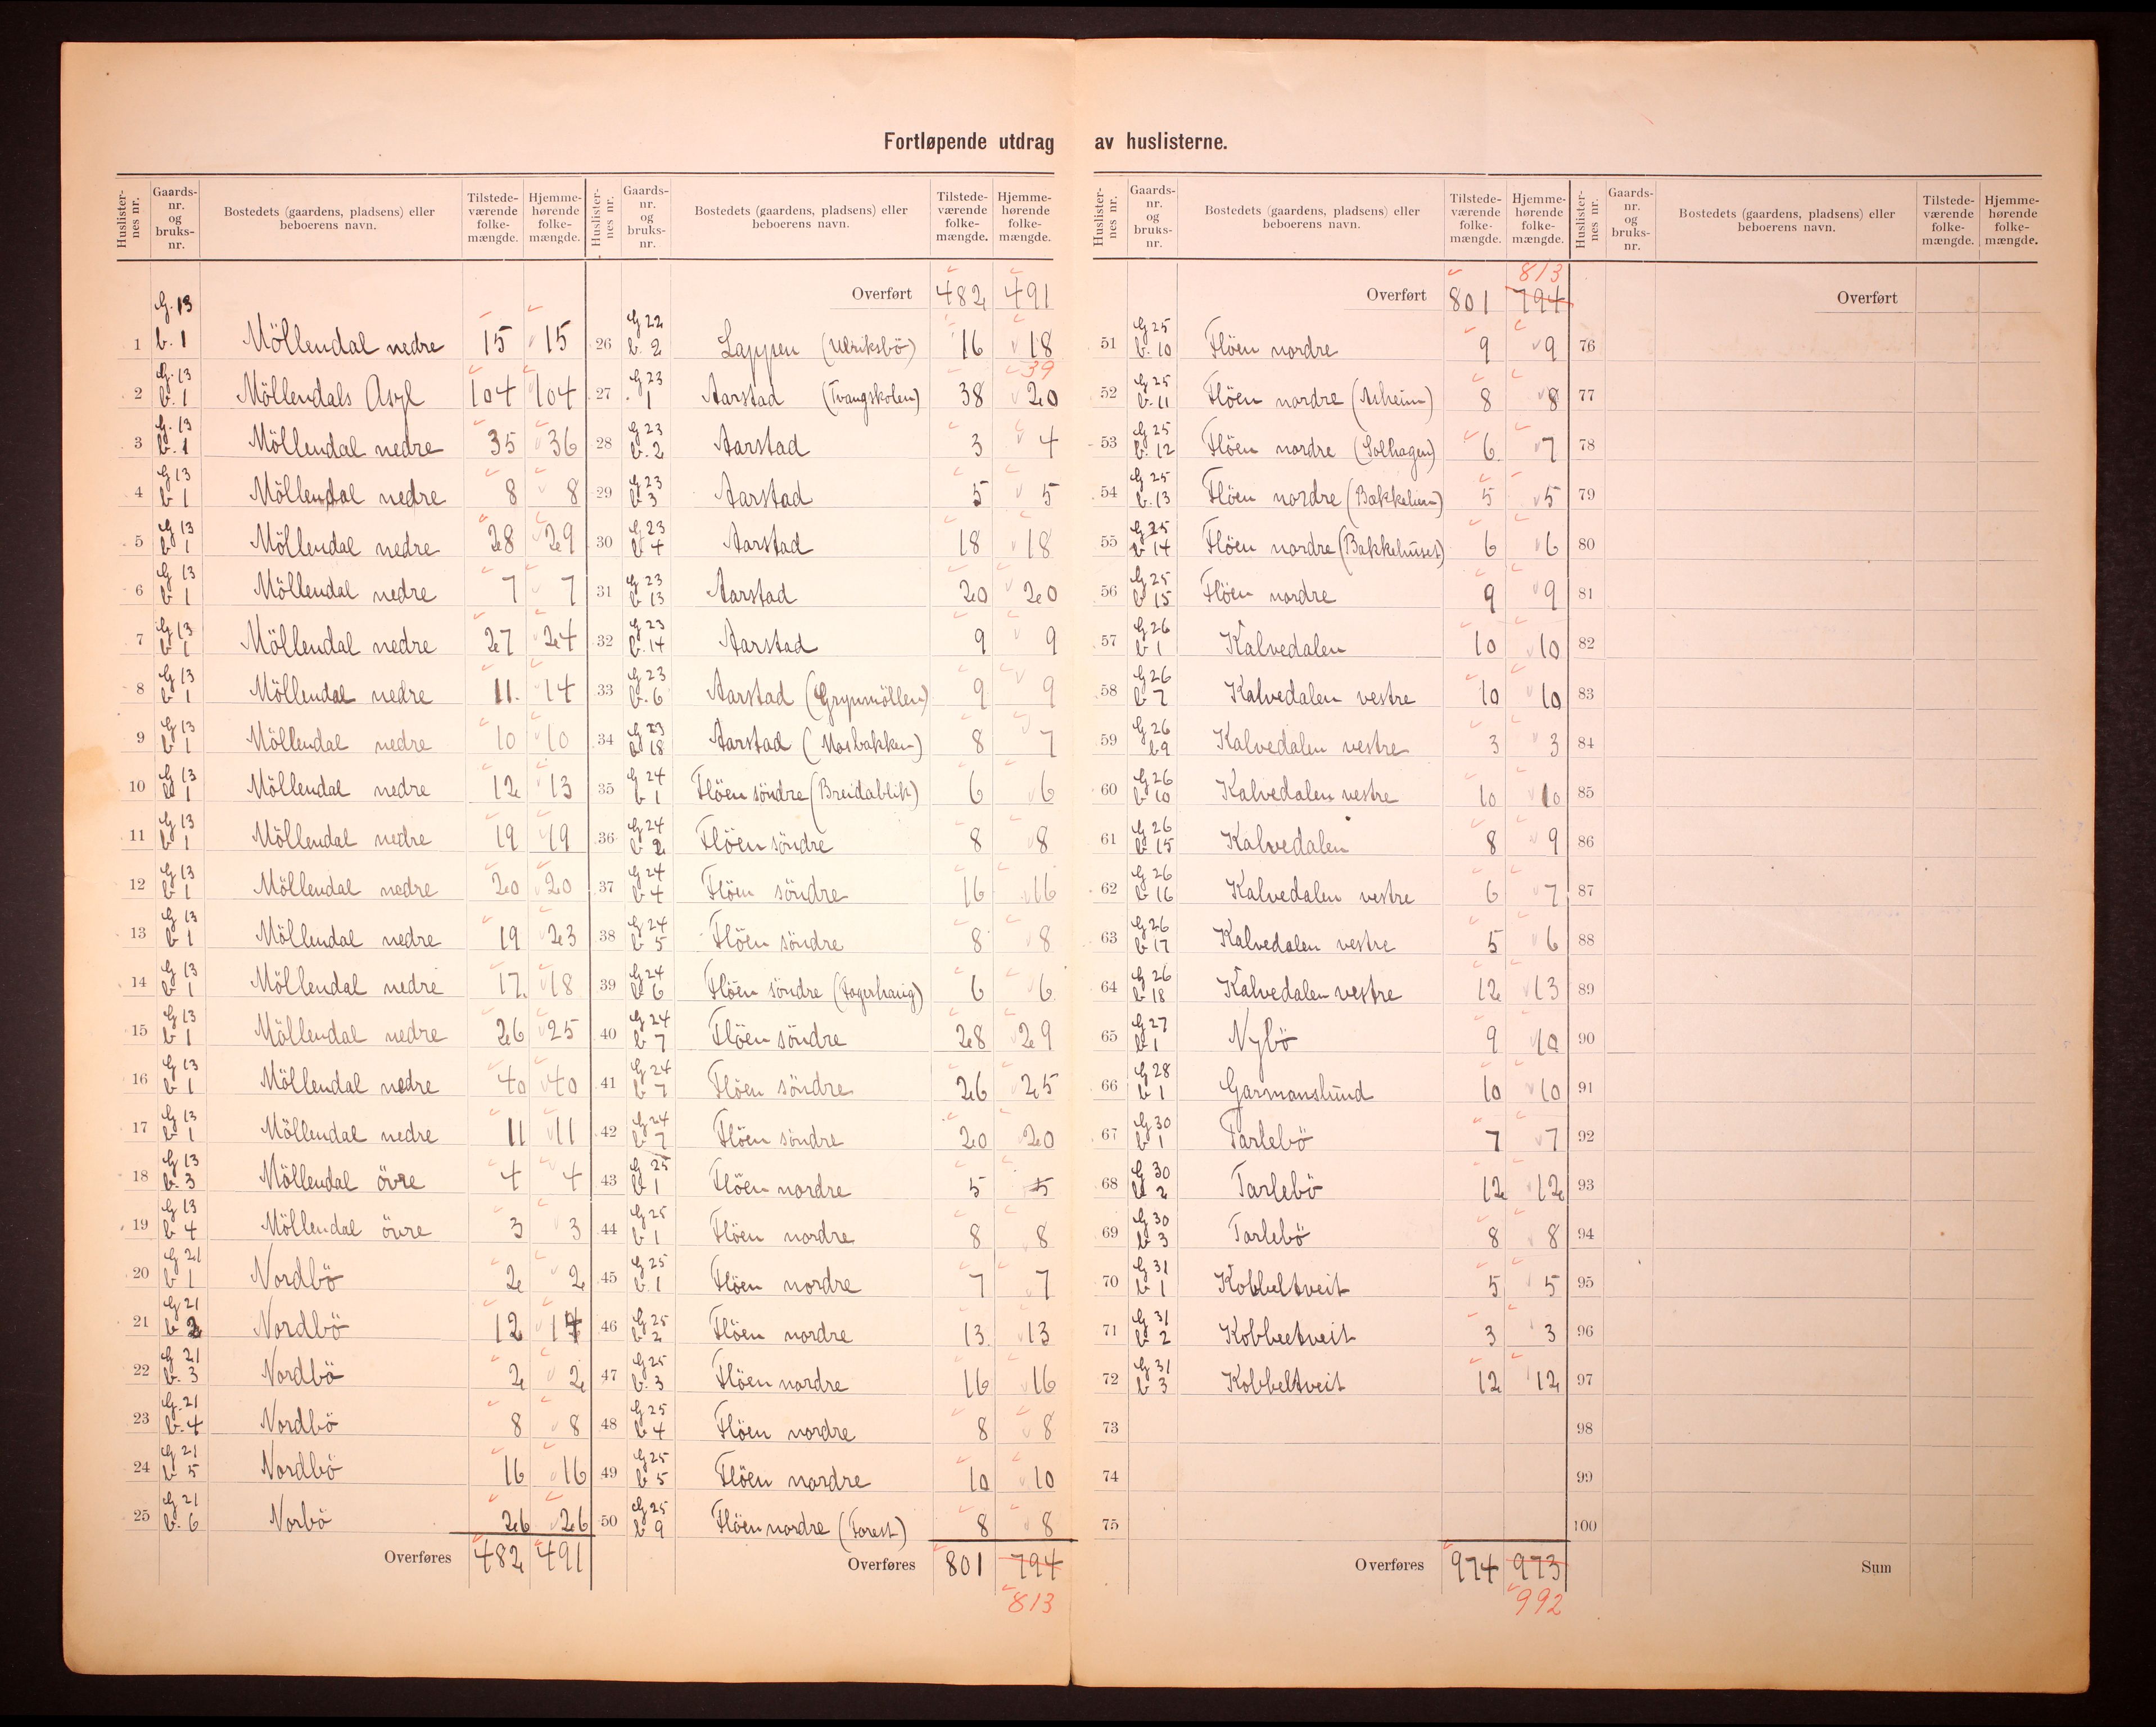 Fortløpende utdrag av huslisterne.
Huslisternes nr. Gaards-nr. og bruks-nr. Bostedets (gaardens, pladsens) eller beboerens navn. Tilstedeværende folkemængde. Hjemmehørende folkemængde.
1 G. 13 b. 1 Möllendal nedre 15 15
2 G. 13 b. 1 Möllendals Asyl 104 104
3 G. 13 b. 1 Möllendal nedre 35 36
4 G 13 b 1 Möllendal nedre 8 8
5 G 13 b 1 Möllendal nedre 28 29
6 G 13 b 1 Möllendal nedre 7 7
7 G 13 b 1 Möllendal nedre 27 24
8 G 13 b 1 Möllendal nedre 11. 14
9 G 13 b 1 Möllendal nedre 10 10
10 G 13 b 1 Möllendal nedre 12 13
11 G 13 b 1 Möllendal nedre 19 19
12 G 13 b 1 Möllendal nedre 20 20
13 G 13 b 1 Möllendal nedre 19 23
14 G 13 b 1 Möllendal nedre 17. 18
15 G 13 b 1 Möllendal nedre 26 25
16 G 13 b 1 Möllendal nedre 40 40
17 G 13 b 1 Möllendal nedre 11 11
18 G 13 b. 3 Möllendal övre 4 4
19 G 13 b 4 Möllendal övre 3 3
20 G 21 b 1 Nordbö 2 2
21 G 21 b 2 Nordbö 12
22 G 21 b. 3 Nordbö 2 2
23 G. 21 b. 4 Nordbö 8 8
24 G 21 b 5 Nordbö 16 16
25 G 21 b. 6 Norbö 26 26
Overføres 482 491
Huslisternes nr. Gaards-nr. og bruks-nr. Bostedets (gaardens, pladsens) eller beboerens navn. Tilstedeværende folkemængde. Hjemmehørende folkemængde.
Overført 482 491
26 G 22 b. 2 Lappen (Ulriksbö) 16 18
27 G 23 1 Aarstad (Tvangskolen) 38 20 39
28 G 23 b. 2 Aarstad 3 4
29 G 23 b 3 Aarstad 5 5
30 G 23 b 4 Aarstad 18 18
31 G 23 b 13 Aarstad 20 20
32 G 23 b. 14 Aarstad 9 9
33 G 23 b. 6 Aarstad (Grynmöllen) 9 9
34 G 23 b 18 Aarstad (Mosbakken) 8 7
35 G 24 b 1 Flöen söndre (Breidablik) 6 6
36 G 24 b 2 Flöen söndre 8 8
37 G 24 b 4 Flöen söndre 16 16
38 G 24 b 5 Flöen söndre 8 8
39 G 24 b 6 Flöen söndre (Fagerhaug) 6 6
40 G 24 b 7 Flöen söndre 28 29
41 G 24 b 7 Flöen söndre 26 25
42 G 24 b 7 Flöen söndre 20 20
43 G 25 b 1 Flöen nordre 5 5
44 G 25 b 1 Flöen nordre 8 8
45 G 25 b. 1 Flöen nordre 7 7
46 G 25 b 2 Flöen nordre 13. 13
47 G 25 b. 3 Flöen nordre 16 16
48 G 25 b 4 Flöen nordre 8 8
49 G 25 b 5 Flöen nordre 10 10
50 G 25 b 9 Flöen nordre (Forest) 8 8
Overføres 801 794
813
Huslisternes nr. Gaards-nr. og bruks-nr. Bostedets (gaardens, pladsens) eller beboerens navn. Tilstedeværende folkemængde. Hjemmehørende folkemængde.
813
Overført 801 794
51 G 25 b. 10 Flöen nordre 9 9
52 G 25 b. 11 Flöen nordre (Asheim) 8 8
53 G 25 b. 12 Flöen nordre (Solhagen) 6. 7
54 G 25 b. 13 Flöen nordre (Bakkelien) 5 5
55 G 25 b 14 Flöen nordre (Bakkehuset) 6 6
56 G 25 b 15 Flöen nordre 9 9
57 G 26 b 1 Kalvedalen 10 10
58 G 26 b 7 Kalvedalen vestre 10 10
59 G 26 b 9 Kalvedalen vestre 3 3
60 G 26 b 10 Kalvedalen vestre 10 10
61 G 26 b 15 Kalvedalen 8 9
62 G 26 b 16 Kalvedalen vestre 6 7
63 G 26 b 17 Kalvedalen vestre 5 6
64 G 26 b 18 Kalvedalen vestre 12 13
65 G 27 b 1 Nybö 9 10
66 G 28 b 1 Garmanslund 10 10
67 G 30 b 1 Tarlebö 7 7
68 G 30 b 2 Tarlebö 12 12
69 G 30 b 3 Tarlebö 8 8
70 G 31 b 1 Kobbeltveit 5 5
71 G 31 b 2 Kobbeltveit 3 3
72 G 31 b 3 Kobbeltveit 12 12
73
74
75
Overføres 974 973
992
Huslisternes nr. Gaards-nr. og bruks-nr. Bostedets (gaardens, pladsens) eller beboerens navn. Tilstedeværende folkemængde. Hjemmehørende folkemængde.
Overført
76
77
78
79
80
81
82
83
84
85
86
87
88
89
90
91
92
93
94
95
96
97
98
99
100
Sum